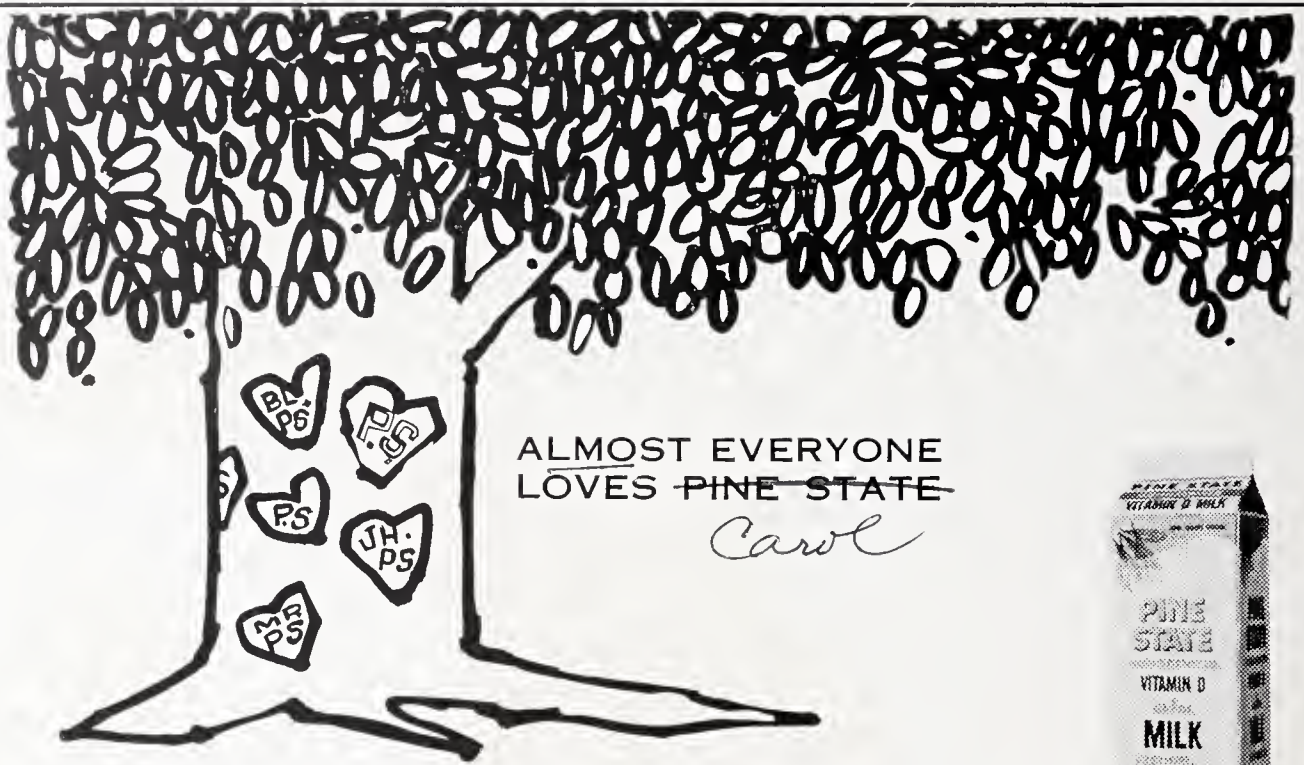 BL.
PS
P.S
S
P.S
JH.
PS
MR
PS
ALMOST EVERYONE
LOVES PINE STATE
Carol
PINE STATE
VITAMIN D MILK
PINE
STATE
VITAMIN D
MILK